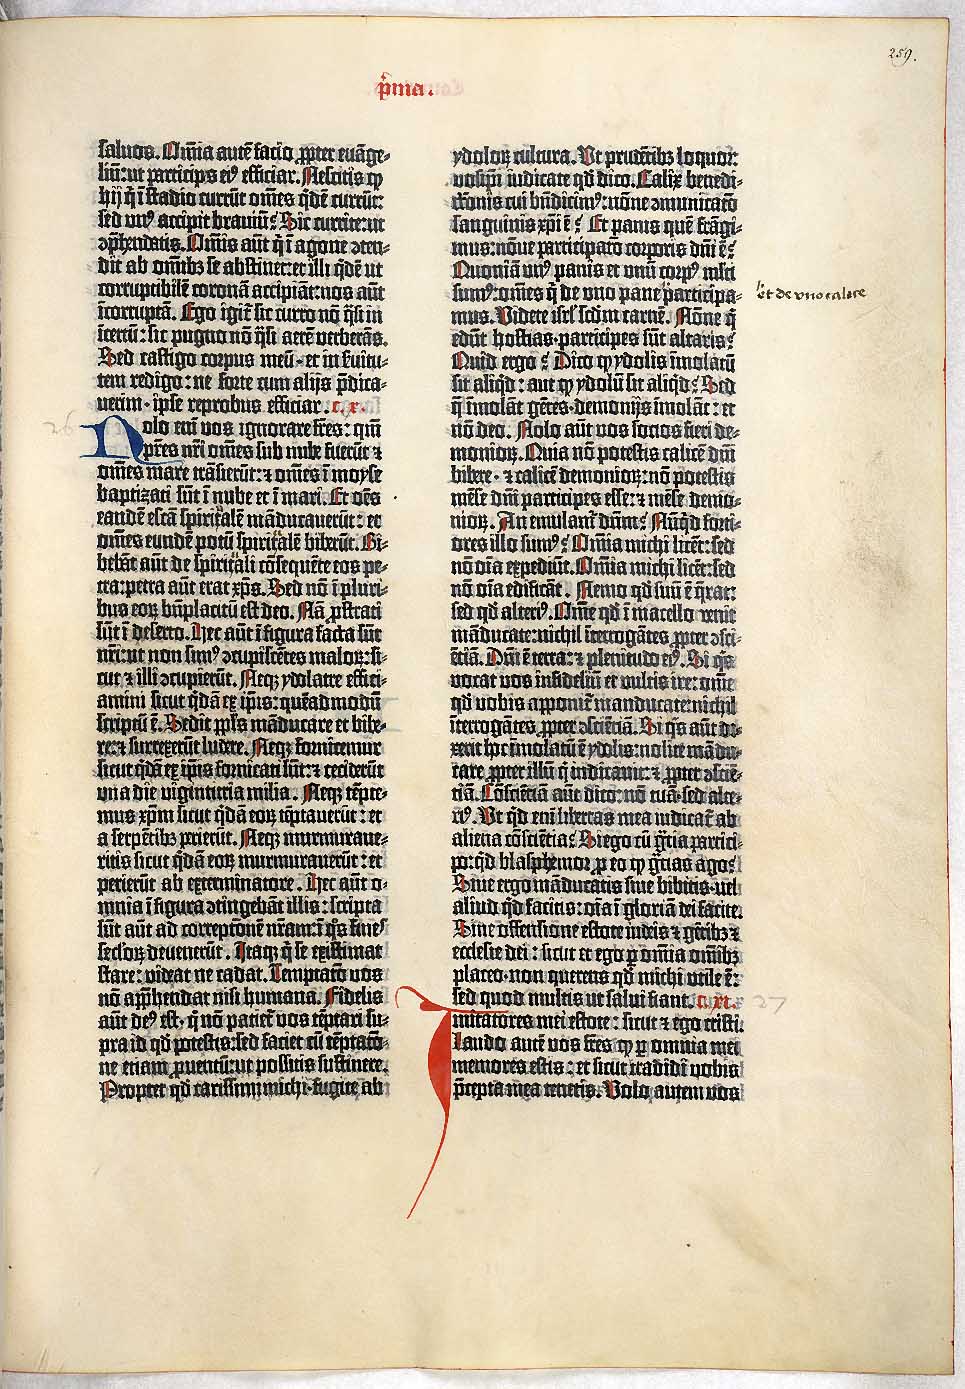 259.
p̄ma.
saluos. Om̄ia autē facio ꝓpter euāge-
liū: ut particips ei⁹ efficiar. Nescitis ꝙ
hij q̄ ī stadio currūt om̄es qͥdē currūt:
sed un⁹ accipit brauiū? Sic currite: ut
ꝯp̄hendatis. Om̄is aūt q̄ ī agone ꝯten-
dit ab om̄ibꝫ se abstinet: et illi qͥdē ut
corruptibilē coronā accipiāt: nos aūt
īcorruptā. Ego igit̄ sic curro nō q̄si in
īcertū: sic pugno nō q̄si aerē verberās.
Sed castigo corpus meū · et in ẜuitu-
tem redigo: ne forte cum alijs p̄dica-
uerim · ipse reprobus efficiar. c. x.
26
Nolo eni vos ignorare fr̄es: qm̄
pr̄es nr̄i om̄es sub nube fuerūt ⁊
om̄es mare trāsierūt: ⁊ om̄es ī moyse
baptizati sūt ī nube et ī mari. Et oēs
eandē escā spiritalē māducauerūt: et
om̄es eundē potū spiritalē biberūt. Bi-
bebāt aūt de spiritali cōsequēte eos pe-
tra: petra aūt erat xp̄s. Sed nō ī pluri-
bus eoꝝ bn̄placitū est deo. Nā ꝓstrati
sūt ī deserto. Hec aūt ī figura facta sūt
nr̄i: ut non sim⁹ ꝯcupiscētes maloꝝ: si-
cut ⁊ illi ꝯcupierūt. Neqꝫ ydolatre effici-
amini sicut qͥdā ex ip̄is: quēadmodū
scriptū ē. Sedit ppl̄s māducare et bibe-
re: ⁊ surrexerūt ludere. Neqꝫ fornicemur
sicut qͥdā ex ip̄is fornicati sūt: ⁊ ceciderūt
una die vigintitria milia. Neqꝫ tēpte-
mus xp̄m sicut qͥdā eoꝝ tēptauerūt: et
a serpētibꝫ perierūt. Neqꝫ murmuraue-
ritis sicut qͥdā eoꝝ murmurauerūt: et
perierūt ab exterminatore. Hec aūt o-
mnia ī figura ꝯtingebāt illis: scripta
sūt aūt ad correptōnē nr̄am: ī qͦs fines
sectoꝝ deuenerūt. Itaqꝫ q̄ se existimat
stare: videat ne cadat. Temptatō vos
nō app̄hendat nisi humana. Fidelis
aūt de⁹ est, q̄ nō patiet̄ vos tēptari su-
pra id qd̄ potestis: sed faciet cū tēptatō-
ne etiam ꝓuentū: ut possitis sustinere.
Propter qd̄ carissimi michi · fugite ab
ydoloꝝ cultura. Ut prudētibꝫ loquor:
vosip̄i iudicate qd̄ dico. Calix benedi-
ctōnis cui bn̄dicim⁹: nōne ꝯmunicatō
sanguinis xp̄i ē? Et panis quē frāgi-
mus: nōne participatō corporis dm̄i ē?
Quoniā un⁹ panis et unū corp⁹ ml̄ti
sum⁹: om̄es q̄ de uno pane participa-
et de vno calice
mus. Videte isrl̄ scd̄m carnē. Nōne q̄
edūt hostias · participes sūt altaris?
Quid ergo? Dico ꝙ ydolis īmolatū
sit aliqͥd: aut ꝙ ydolū sit aliqͥd? Sed
q̄ īmolāt gētes · demonijs īmolāt: et
nō deo. Nolo aūt vos socios fieri de-
monioꝝ. Nō potestis calicē dm̄i
bibere · ⁊ calicē demonioꝝ: nō potestis
mēse dm̄i participes esse: ⁊ mēse demo-
nioꝝ. An emulant̄ dn̄m? Nūqͥd forti-
ores illo sum⁹? Om̄ia michi licēt: sed
nō oīa expediūt. Om̄ia michi licēt: sed
nō oīa edificāt. Nemo qd̄ suū ē q̄rat:
sed qd̄ alteri⁹. Om̄e qd̄ ī macello venit
māducate: nichil īterrogātes ꝓpter ꝯsci-
ētiā. Dm̄i ē terra: ⁊ plenitudo ei⁹. Si qͥs
vocat vos infideliū et vultis ire: om̄e
qd̄ vobis apponit̄ manducate: nichil
īterrogātes ꝓpter ꝯsciētiā. Si qͥs aūt di-
xerit hoc īmolatū ē ydolis: nolite mādu-
care ꝓpter illū q̄ indicauit: ⁊ ꝓpter ꝯsciē-
tiā. Cōsciētiā aūt dico: nō tuā · sed alte-
ri⁹. Ut qd̄ eni libertas mea iudicat̄ ab
aliena cōsciētia? Si ego cū gr̄tia partici-
po: qͥd blasphemor ꝓ eo ꝙ gr̄tias ago?
Siue ergo māducatis siue bibitis · uel
aliud qͥd facitis: oīa ī gloriā dei facite.
Sine offensione estote iudeis ⁊ gētibꝫ ⁊
ecclesie dei: sicut et ego ꝑ om̄ia om̄ibꝫ
placeo · non querens qd̄ michi utile ē:
sed quod multis ut salui fiant. c. xi.
27
Imitatores mei estote: sicut ⁊ ego cristi.
Laudo autē vos fr̄es ꝙ ꝑ omnia mei
memores estis: et sicut tradidi vobis
p̄cepta mea tenetis. Volo autem vos